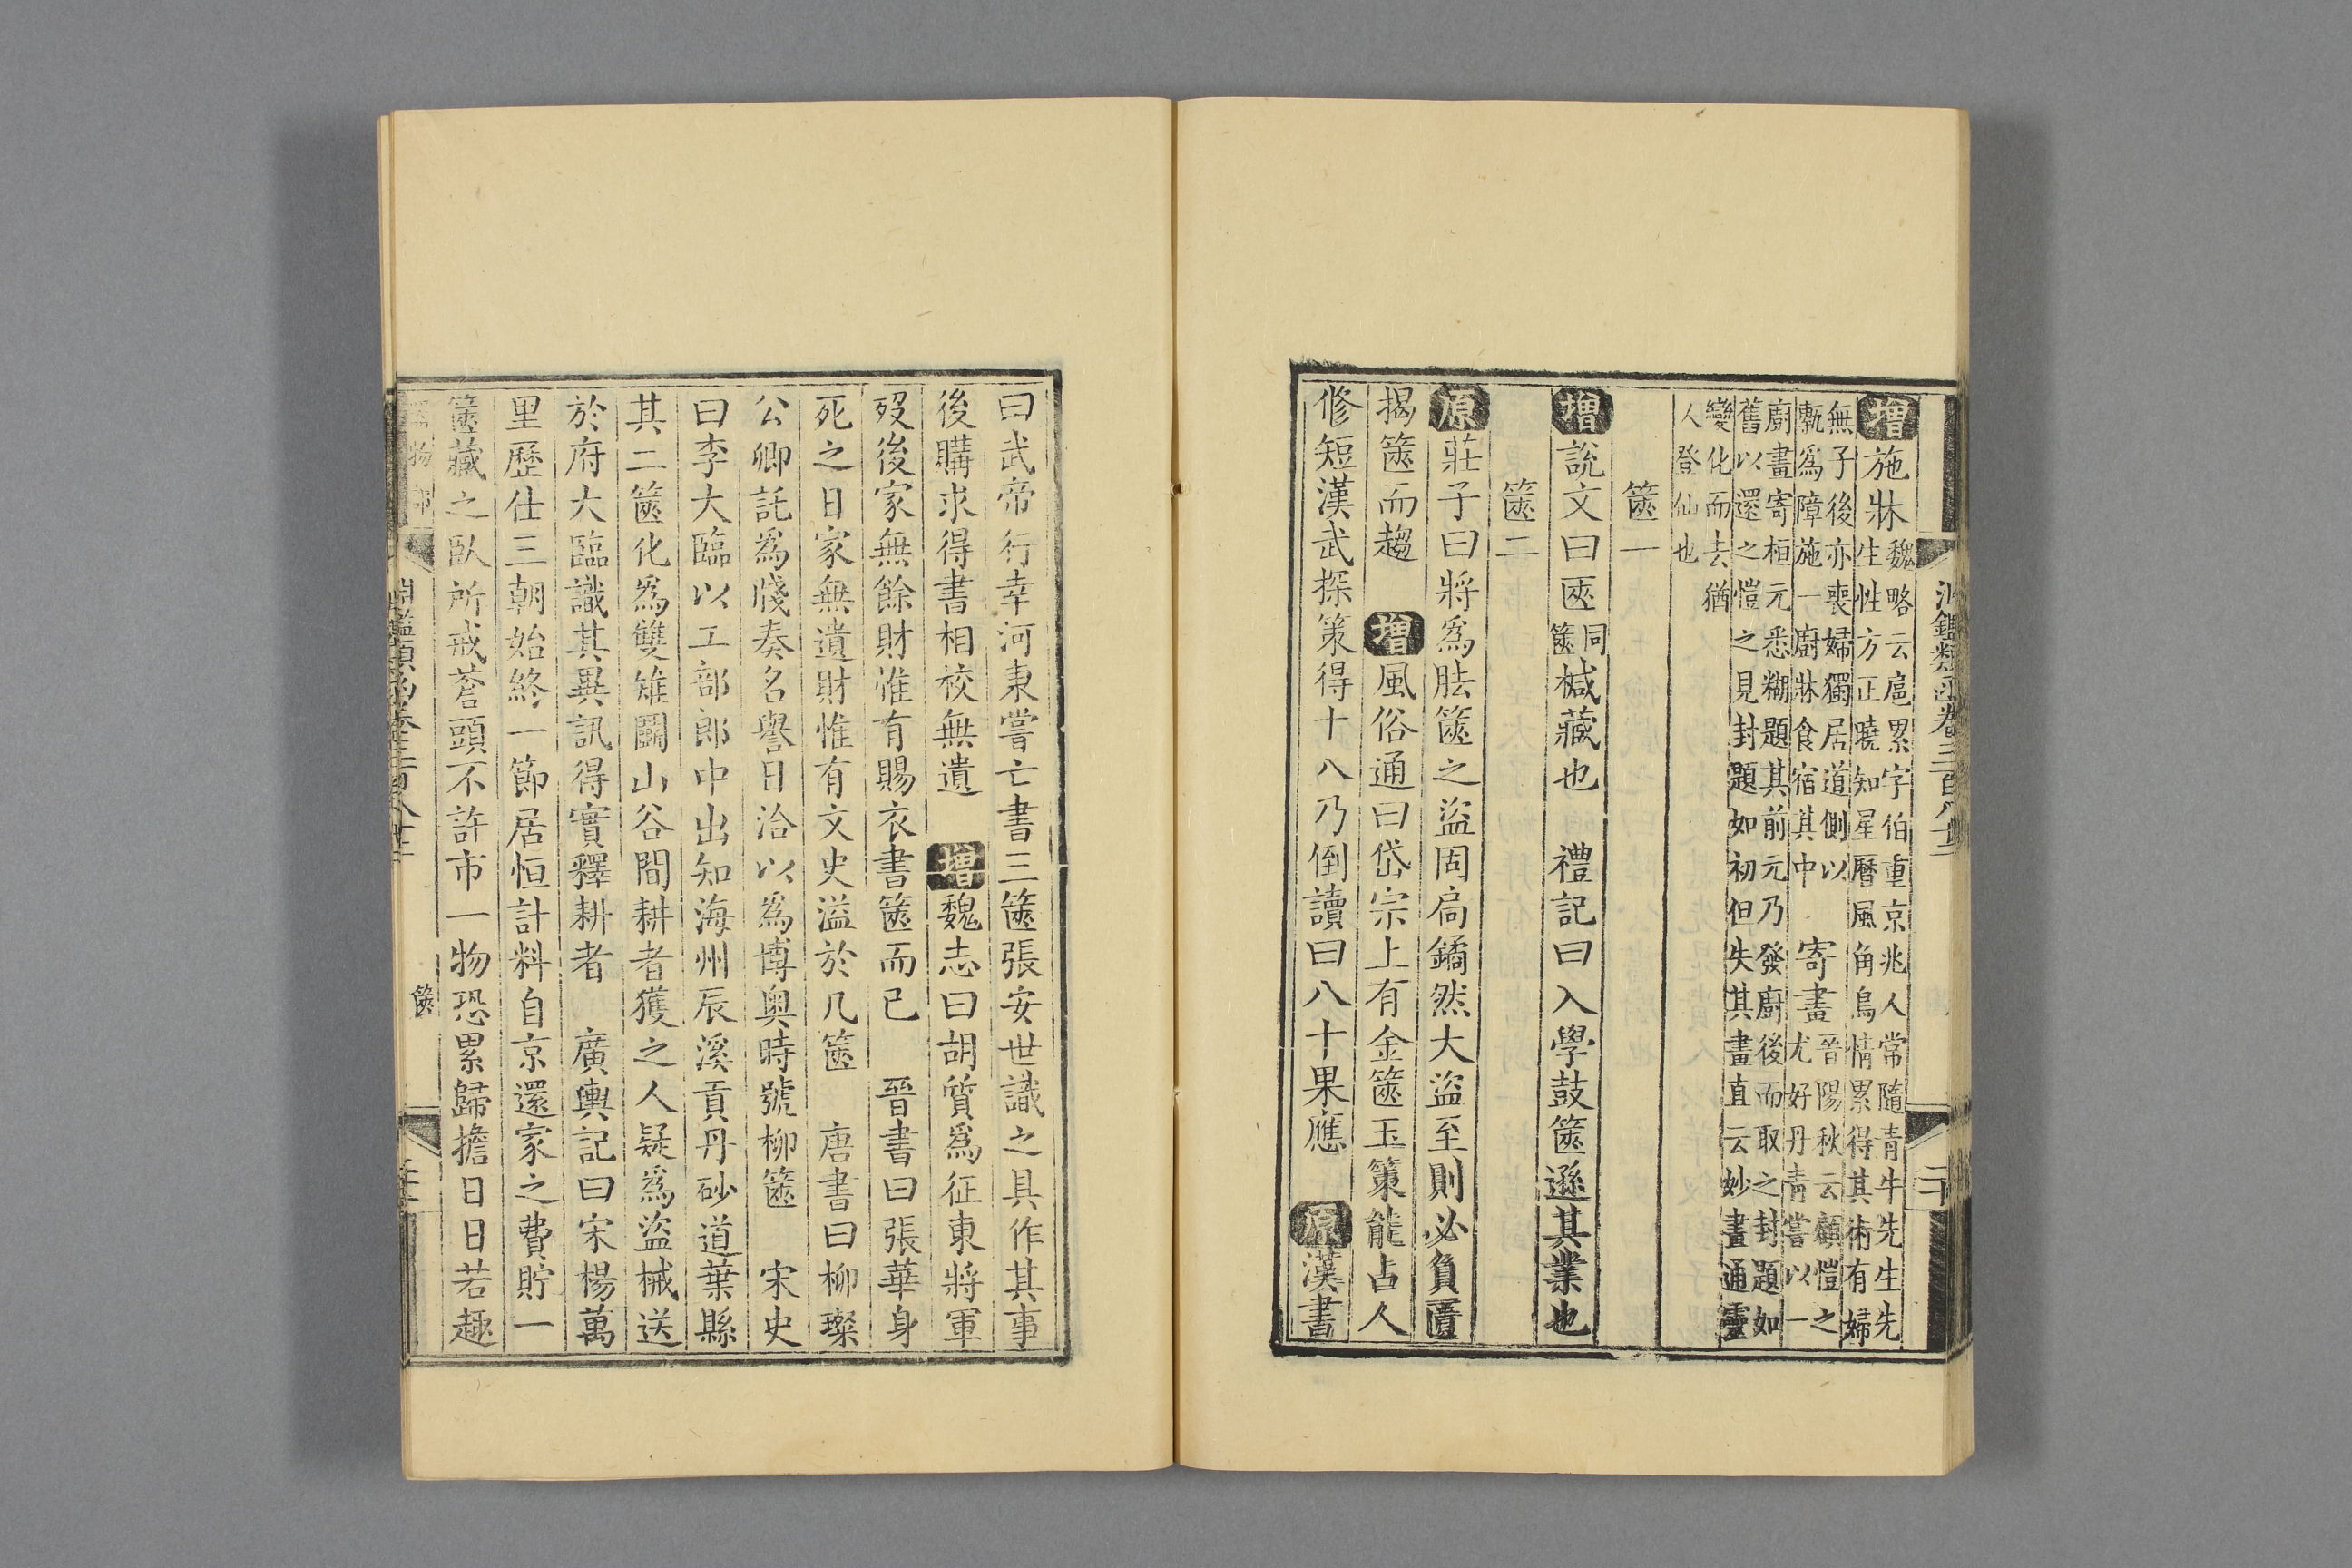 鑑類函卷三百八十三
二十
增施牀魏略云扈累字伯重京兆人常隨青牛先生先
生性方正曉知星曆風角鳥情累得其術有婦
無子後亦喪婦獨居道側以
甎為障施一廚牀食宿其中
寄畫晉陽秋云顧愷之
尤好丹青嘗以一
廚畫寄桓元悉糊題其前元乃發廚後而取之封題如
舊以還之愷之見封題如初但失其畫直云妙畫通靈
變化而去猶
人登仙也
篋一
增說文曰匧同篋椷藏也　禮記曰入學鼓篋遜其業也
篋二
原莊子曰將爲胠篋之盜固扃鐍然大盜至則必負匱
揭篋而趨　增風俗通曰岱宗上有金篋玉策能占人
修短漢武探策得十八乃倒讀曰八十果應　原漢書
曰武帝行幸河東嘗亡書三篋張安世識之具作其事
後購求得書相校無遺　增魏志曰胡質爲征東將軍
歿後家無餘財惟有賜衣書篋而已　晉書曰張華身
死之日家無遺財惟有文史溢於几篋　唐書曰柳璨
公卿託爲牋奏名譽日洽以爲博奧時號柳篋　宋史
曰李大臨以工部郎中出知海州辰溪貢丹砂道葉縣
其二篋化爲雙雉鬭山谷間耕者獲之人疑爲盜械送
於府大臨識其異訊得實釋耕者　廣輿記曰宋楊萬
里歷仕三朝始終一節居恒計料自京還家之費貯一
篋藏之臥所戒蒼頭不許市一物恐累歸擔日日若趣
物部
篋